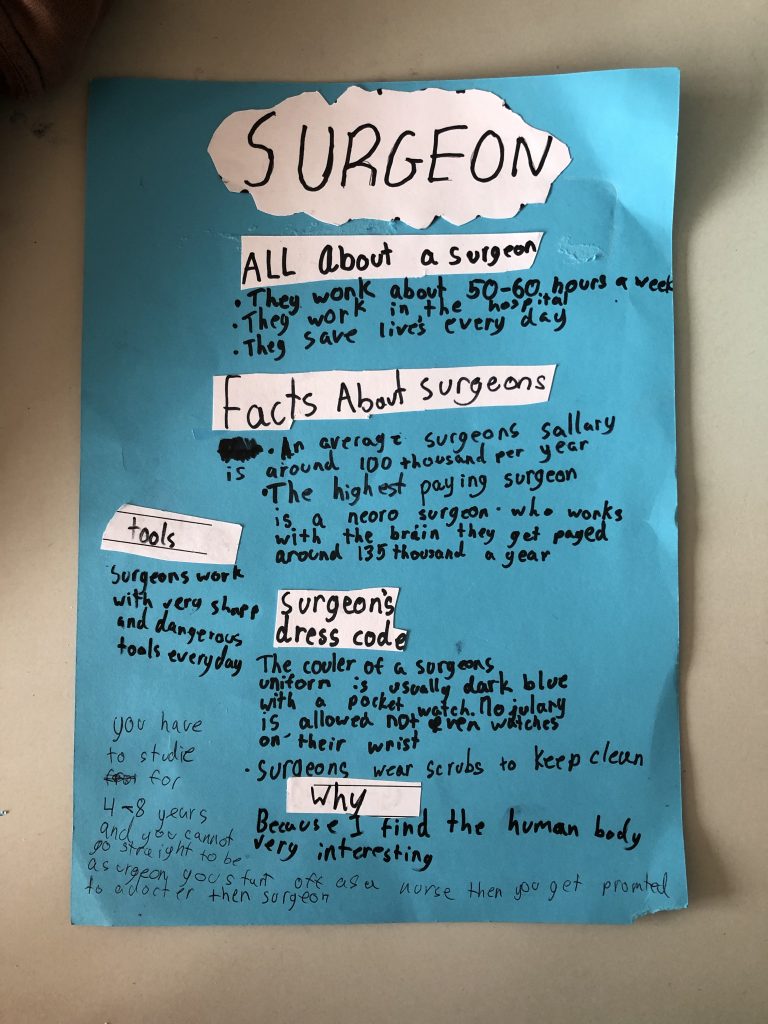 SURGEON
ALL About a surgeon
• They work about 50-60 hours a week
• They work in the hospital
• They save lives every day
Facts About surgeons
• An average surgeons sallary
is around 100 thousand per year
• The highest paying surgeon
is a neoro surgeon. who works
with the brain they get paged
around 135 thousand a year
tools
Surgeons work
with very sharp
and dangerous
tools everyday
Surgeon's
dress code
The couler of a surgeons
uniform is usually dark blue
with a pocket watch. No julary
is allowed not even watches
on their wrist
• Surgeons wear scrubs to keep clean
Why
Because I find the human body
very interesting
you have
to studie
for
4-8 years
and you cannot
go straight to be
a surgeon you start off as a nurse then you get promted
to a docter then surgeon